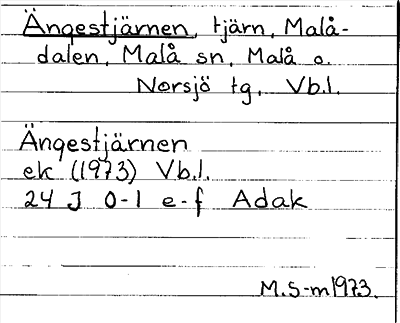 Ängestjärnen, tjärn, Malå-
dalen, Malå sn, Malå o.
Norsjö tg, Vb.l.
Ängestjärnen
ek (1973) Vb.l.
24 J 0-1 e-f Adak
M.S-m 1973.